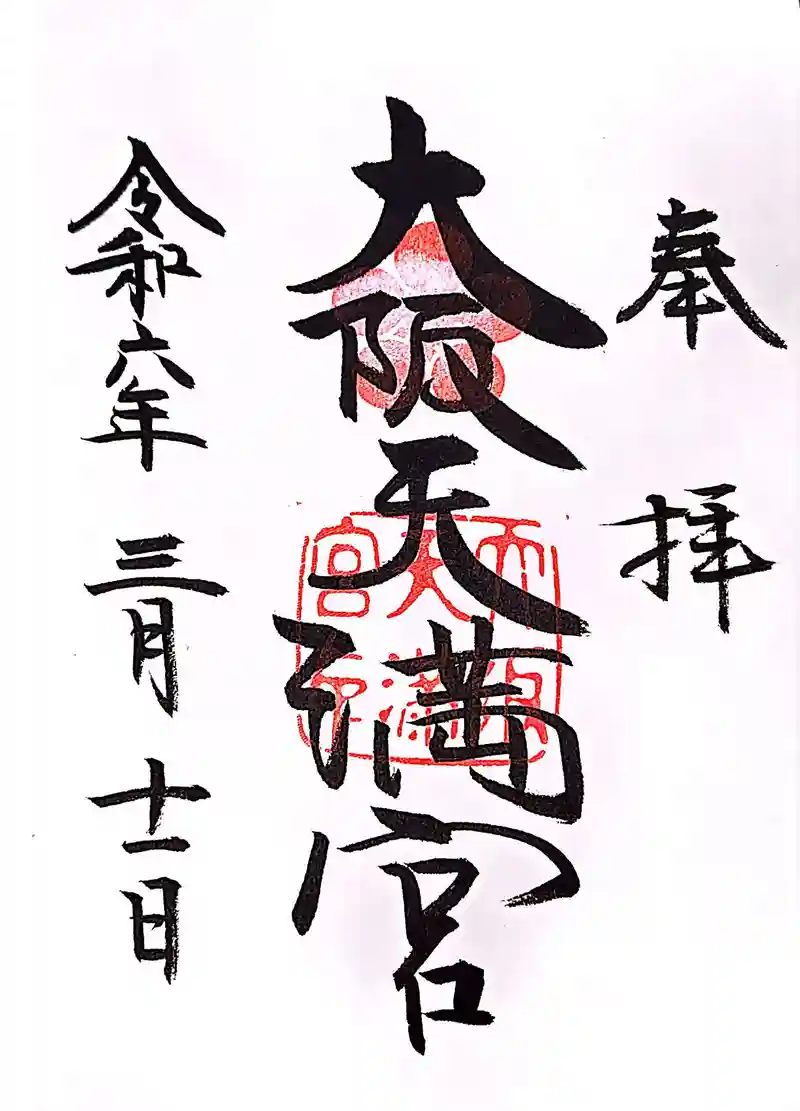 奉拝
大阪天満宮
大阪天満宮印
令和六年三月十一日